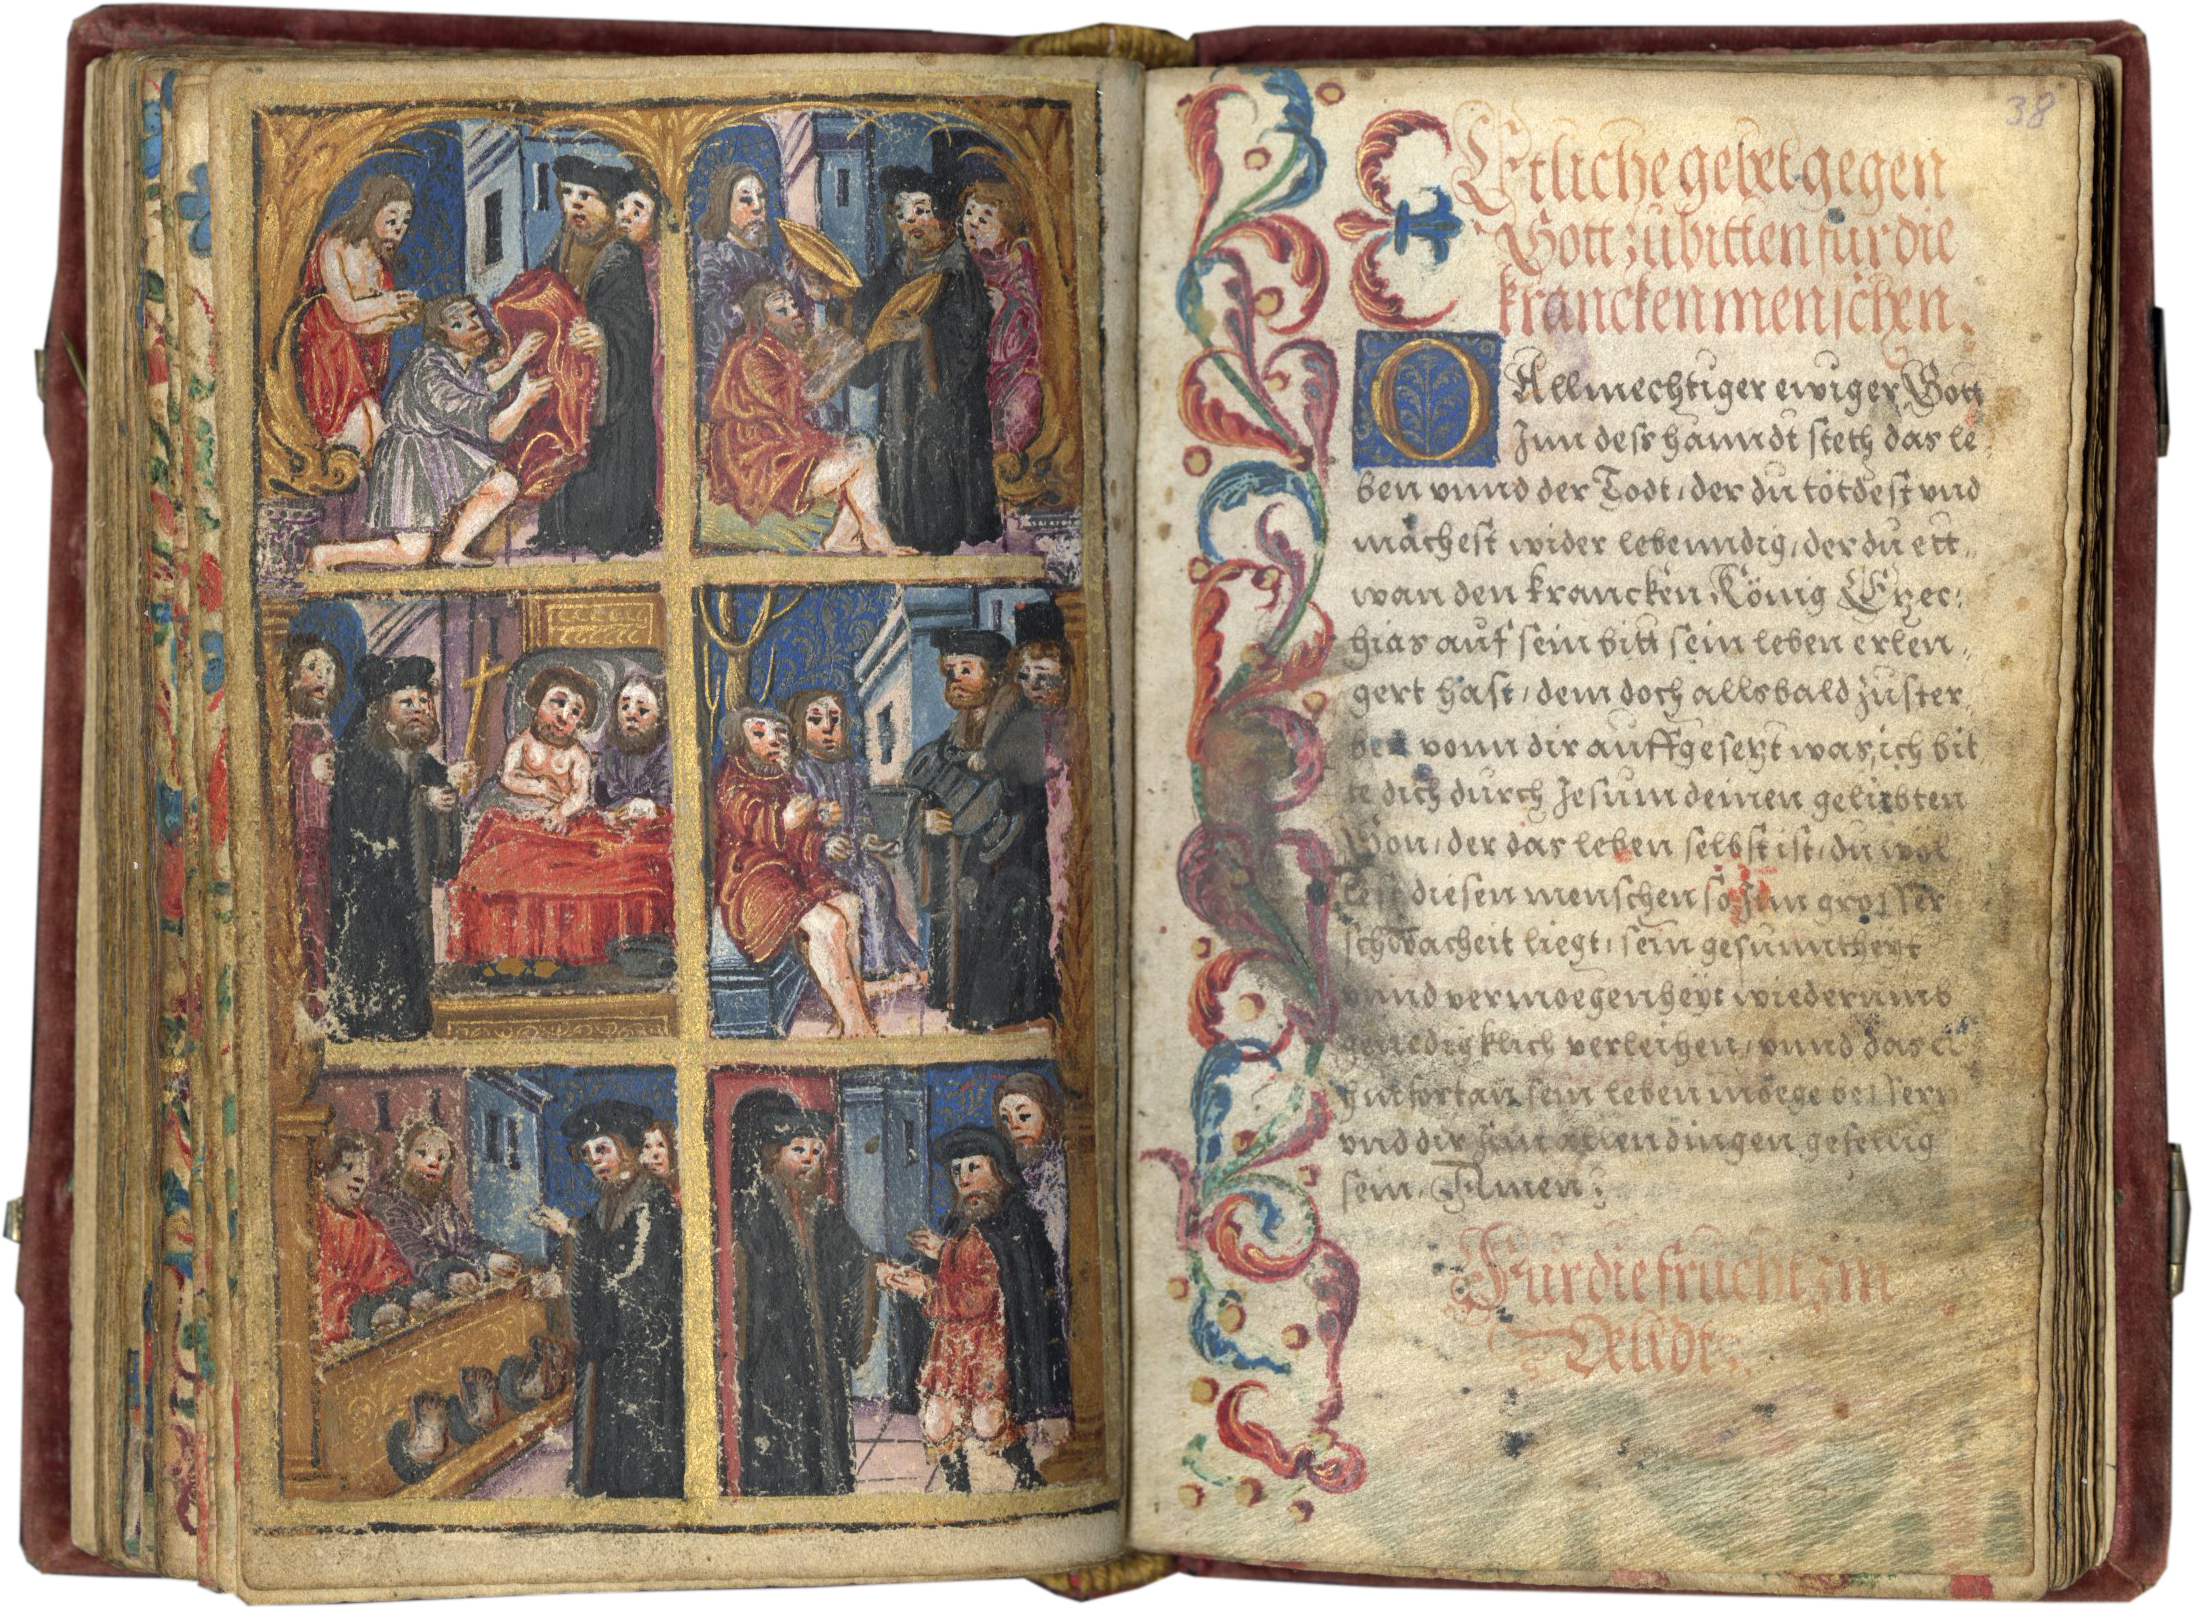 38
Etliche gebet gegen
Gott zu bitten für die
krancken menschen.
O Allmechtiger ewiger Gott
Inn dess hanndt steth das le-
ben vnnd der Todt, der du tötdest vnd
machest wider lebenndig, der du ett-
wan den krancken König Ezec:
hias auf sein bitt sein leben erlen-
gert hast, dem doch allsbald zu ster
ben vonn dir auffgesetzt was, ich bit
te dich durch Jesum deinen geliebten
Son, der das leben selbst ist, du wol
lest diesen menschen so Inn grosser
schwacheit liegt, sein gesunntheyt
vnnd vermoegenheyt wiederumb
genedigklich verleihen, vnnd das er
hinfortan sein leben moege bessern
vnd dir Inn allen dingen gefellig
sein, Amen:
Für die frücht im
Veldt.